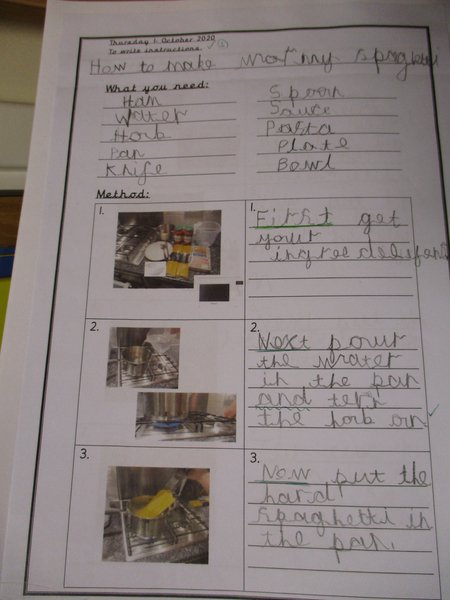 Thursday 1 October 2020
To write instructions.
How to make
What you need:
Ham
Water
Hob
Pan
Knife
Spoon
Sauce
Pasta
Plate
Bowl
Method:
1.
1.
First get
your
2.
2.
Next pour
the water
in the pan
and tern
the hob on
3.
3.
Now put the
hard
spaghetti in
the pan.